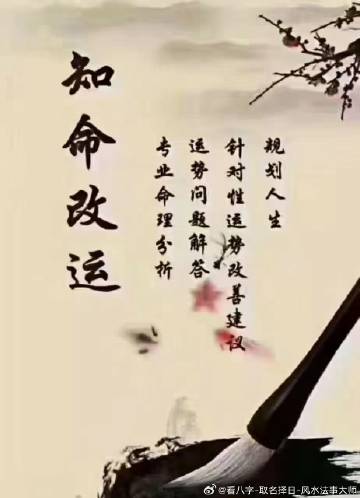 知命改运
规划人生
针对性运势改善建议
运势问题解答
专业命理分析
@看八字-取名择日-风水法事大师